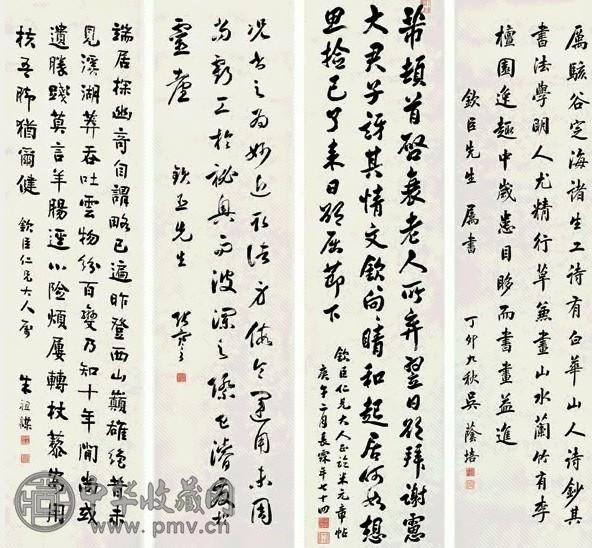 厲駭谷定海諸生工詩有白華山人詩鈔其
書法學明人尤精行草兼畫山水蘭竹有李
檀園逸趣中歲患目眵而書畫益進
欽臣先生屬書
丁卯九秋吳蔭培
芾頓首啓衰老人所弃翌日欲拜謝憲
大君子訝其情文欽向晴和起居何如想
思拾已了來日欲屈節下
欽臣仁兄大人正臨米元章帖
庚午二月長霖年七十四
況書之為妙近取諸身假令運用未周
尚虧工於秘奧而波瀾之際已濬發於
靈臺
欽臣先生
端居探幽奇自謂略已遍昨登西山巔雄絕昔未
見溪湖莽吞吐雲物紛百變乃知十年間尚或
遺勝踐莫言羊腸逕小險煩屢轉杖藜用
吾腳猶爾健
欽臣仁兄大人屬
朱祖謀
中华收藏网
www.pmv.cn